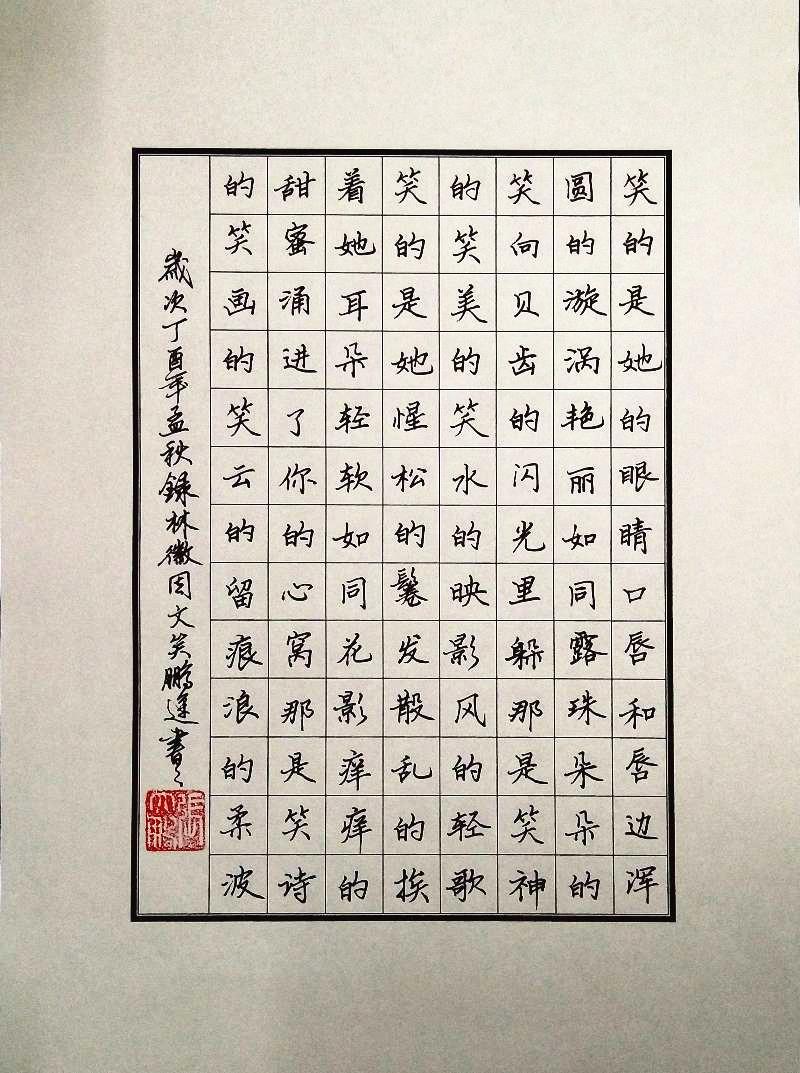 笑的是她的眼睛口唇和唇边浑
圆的漩涡艳丽如同露珠朵朵的
笑向贝齿的闪光里躲那是笑神
的笑美的笑水的映影风的轻歌
笑的是她惺松的鬈发散乱的挨
着她耳朵轻软如同花影痒痒的
甜蜜涌进了你的心窝那是笑诗
的笑画的笑云的留痕浪的柔波
歲次丁酉年孟秋録林徽因文笑鹏書之